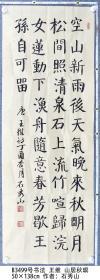 空山新雨後天氣晚來秋明月
松間照清泉石上流竹喧歸浣
女蓮動下漁舟隨意春芳歇王
孫自可留
唐王維詩丁酉月石秀山
83499号书法 王维 山居秋暝
50×138cm 作者：石秀山